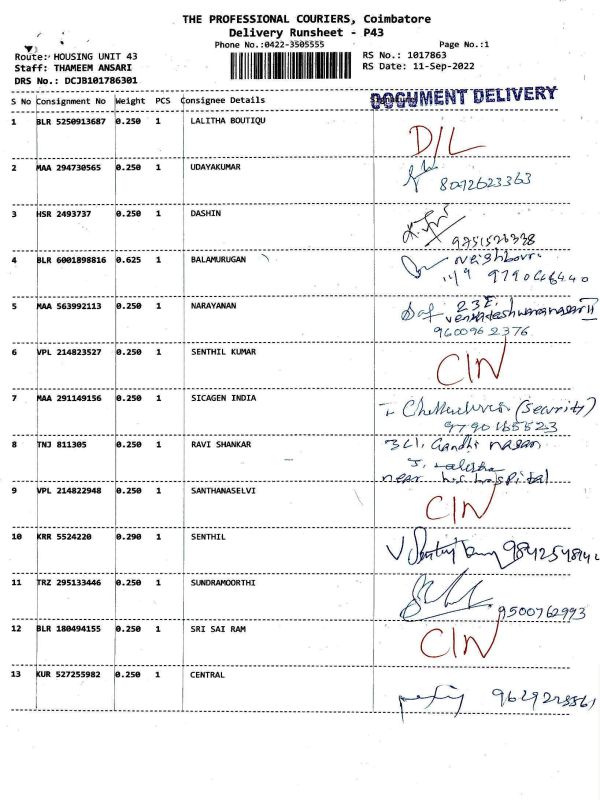 THE PROFESSIONAL COURIERS, Coimbatore
Delivery Runsheet - P43
Phone No.:0422-3505555 Page No.:1
Route: HOUSING UNIT 43 RS No.: 1017863
Staff: THAMEEM ANSARI RS Date: 11-Sep-2022
DRS No.: DCJB101786301
DOCUMENT DELIVERY
S No Consignment No Weight PCS Consignee Details Signature
1 BLR 5250913687 0.250 1 LALITHA BOUTIQU
D/L
2 MAA 294730565 0.250 1 UDAYAKUMAR
8072623363
3 HSR 2493737 0.250 1 DASHIN
4 BLR 6001898816 0.625 1 BALAMURUGAN
Neighbour
5 MAA 563992113 0.250 1 NARAYANAN
23E.
9600962376
6 VPL 214823527 0.250 1 SENTHIL KUMAR
CIN
7 MAA 291149156 0.250 1 SICAGEN INDIA
(security)
9790165523
8 TNJ 811305 0.250 1 RAVI SHANKAR
Gandhi nagar
J. Lalitha
near hospital
9 VPL 214822948 0.250 1 SANTHANASELVI
CIN
10 KRR 5524220 0.290 1 SENTHIL
11 TRZ 295133446 0.250 1 SUNDRAMOORTHI
9500762993
12 BLR 180494155 0.250 1 SRI SAI RAM
CIN
13 KUR 527255982 0.250 1 CENTRAL